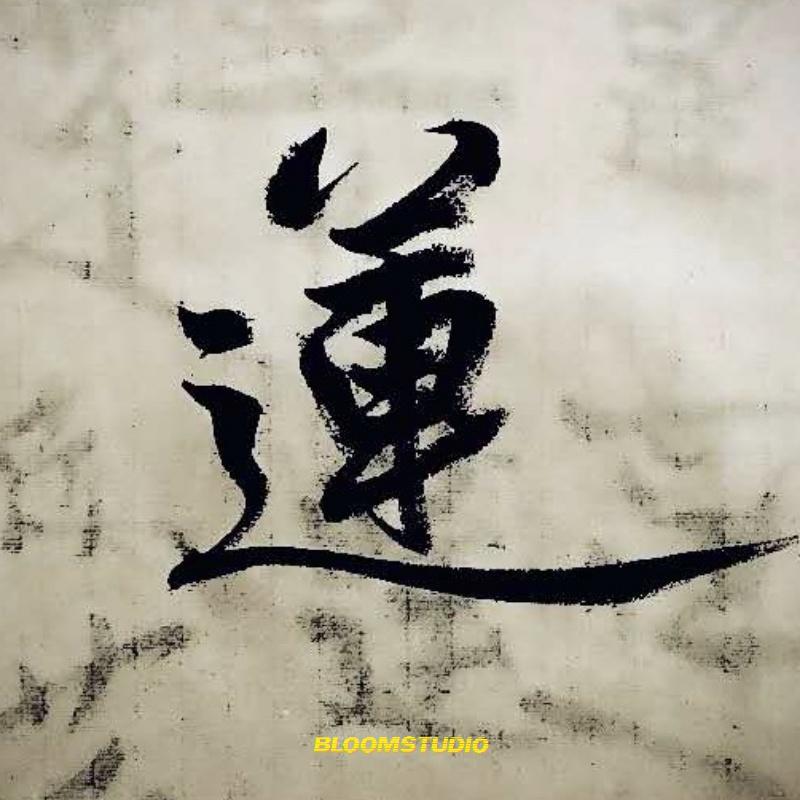 蓮
BLOOMSTUDIO